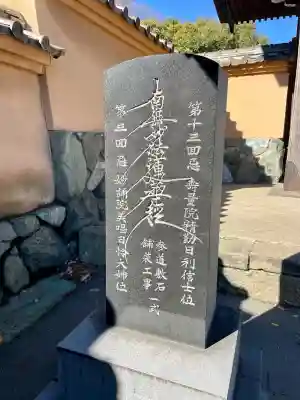 第十三回忌 壽量院精勤日利信士位
南無妙法蓮華経
第三回忌 妙諦院美唱日特大姉位
参道敷石
舗装工事 一式